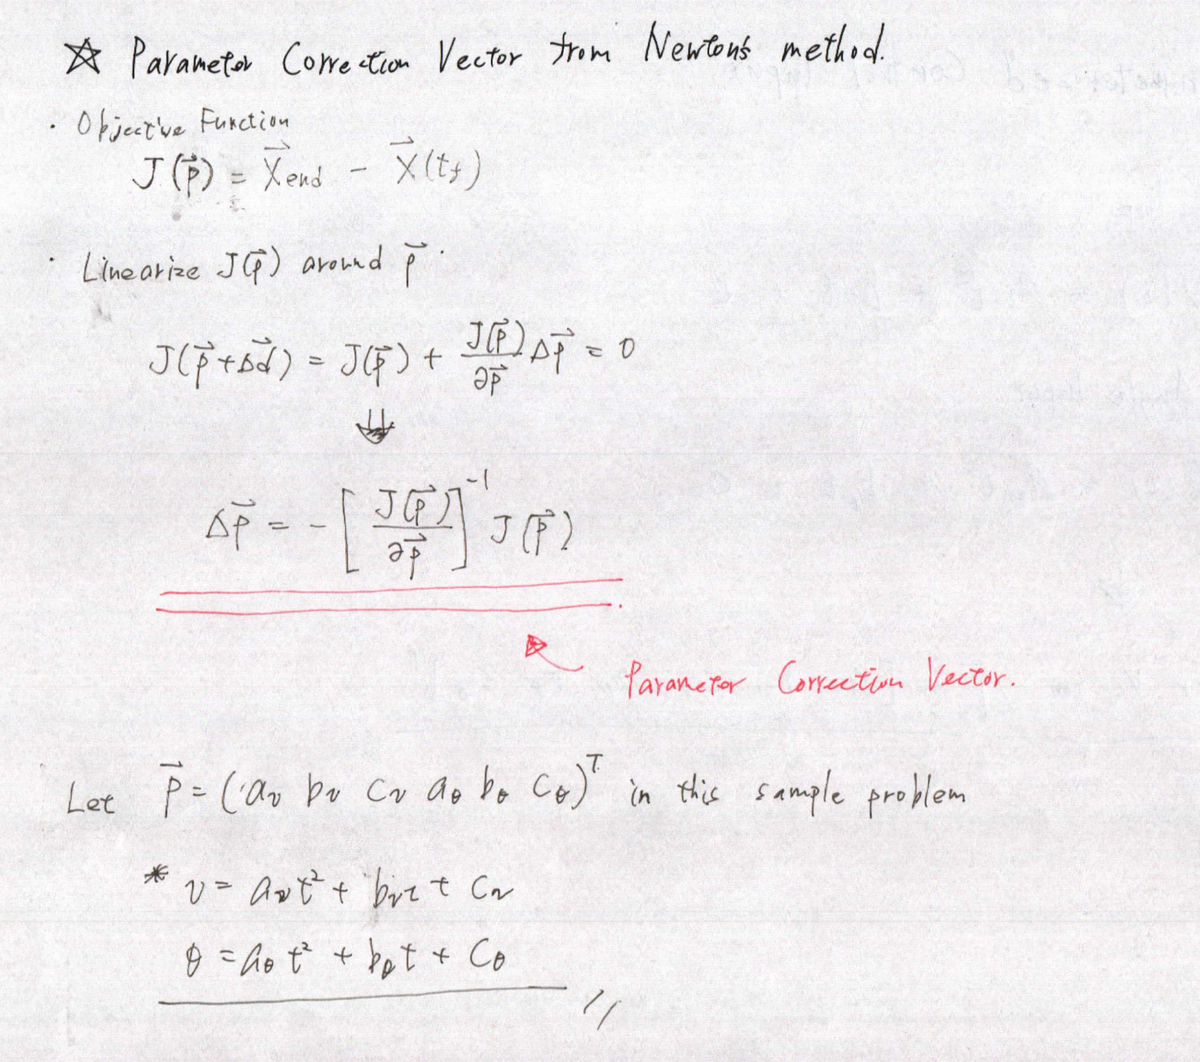 ☆ Parameter Correction Vector from Newton's method.
· Objective Function
J(p⃗) = X⃗end - X⃗(tf)
· Linearize J(p⃗) around p⃗.
J(p⃗+Δd⃗) = J(p⃗) + J(p⃗)/∂p⃗ Δp⃗ = 0
⇓
Δp⃗ = - [ J(p⃗)/∂p⃗ ]⁻¹ J(p⃗)
Parameter Correction Vector.
Let p⃗ = (av bv cv aθ bθ cθ)ᵀ in this sample problem
* v = avt² + bvt + cv
θ = aθt² + bθt + cθ